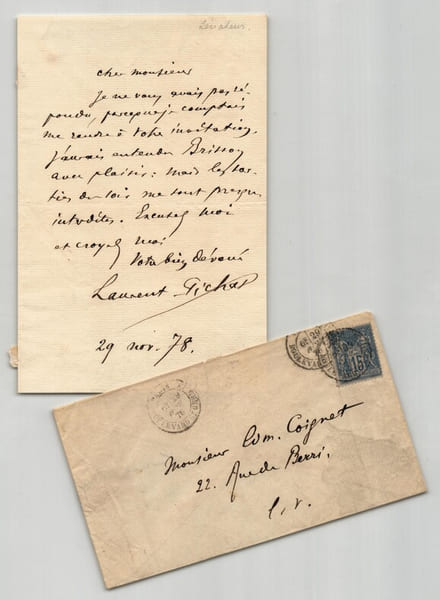 Sénateur.
cher monsieur
Je ne vous avais pas ré-
pondu, parceque je comptais
me rendre à votre invitation.
J'aurais entendu Brisson
avec plaisir: mais les sor-
ties du soir me sont presque
interdites. Excusez moi
et croyez moi
Votre bien dévoué
Laurent Pichat
29 nov. 78.
15
BOULEVARD
Monsieur Edm. Coignet
22. Rue de Berri.
E.V.